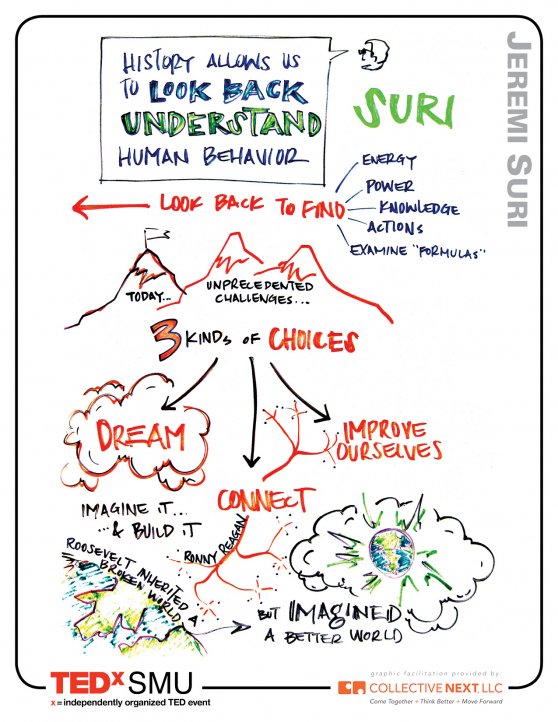 JEREMI SURI
HISTORY ALLOWS US
TO LOOK BACK
UNDERSTAND
HUMAN BEHAVIOR
SURI
LOOK BACK TO FIND
ENERGY
POWER
KNOWLEDGE
ACTIONS
EXAMINE "FORMULAS"
TODAY...
UNPRECEDENTED
CHALLENGES...
3 KINDS OF CHOICES
DREAM
IMPROVE
OURSELVES
CONNECT
IMAGINE IT...
...& BUILD IT
RONNY REAGAN
ROOSEVELT INHERITED A
BROKEN WORLD
BUT IMAGINED
A BETTER WORLD
TEDxSMU
x = independently organized TED event
graphic facilitation provided by:
COLLECTIVE NEXT, LLC
Come Together + Think Better + Move Forward